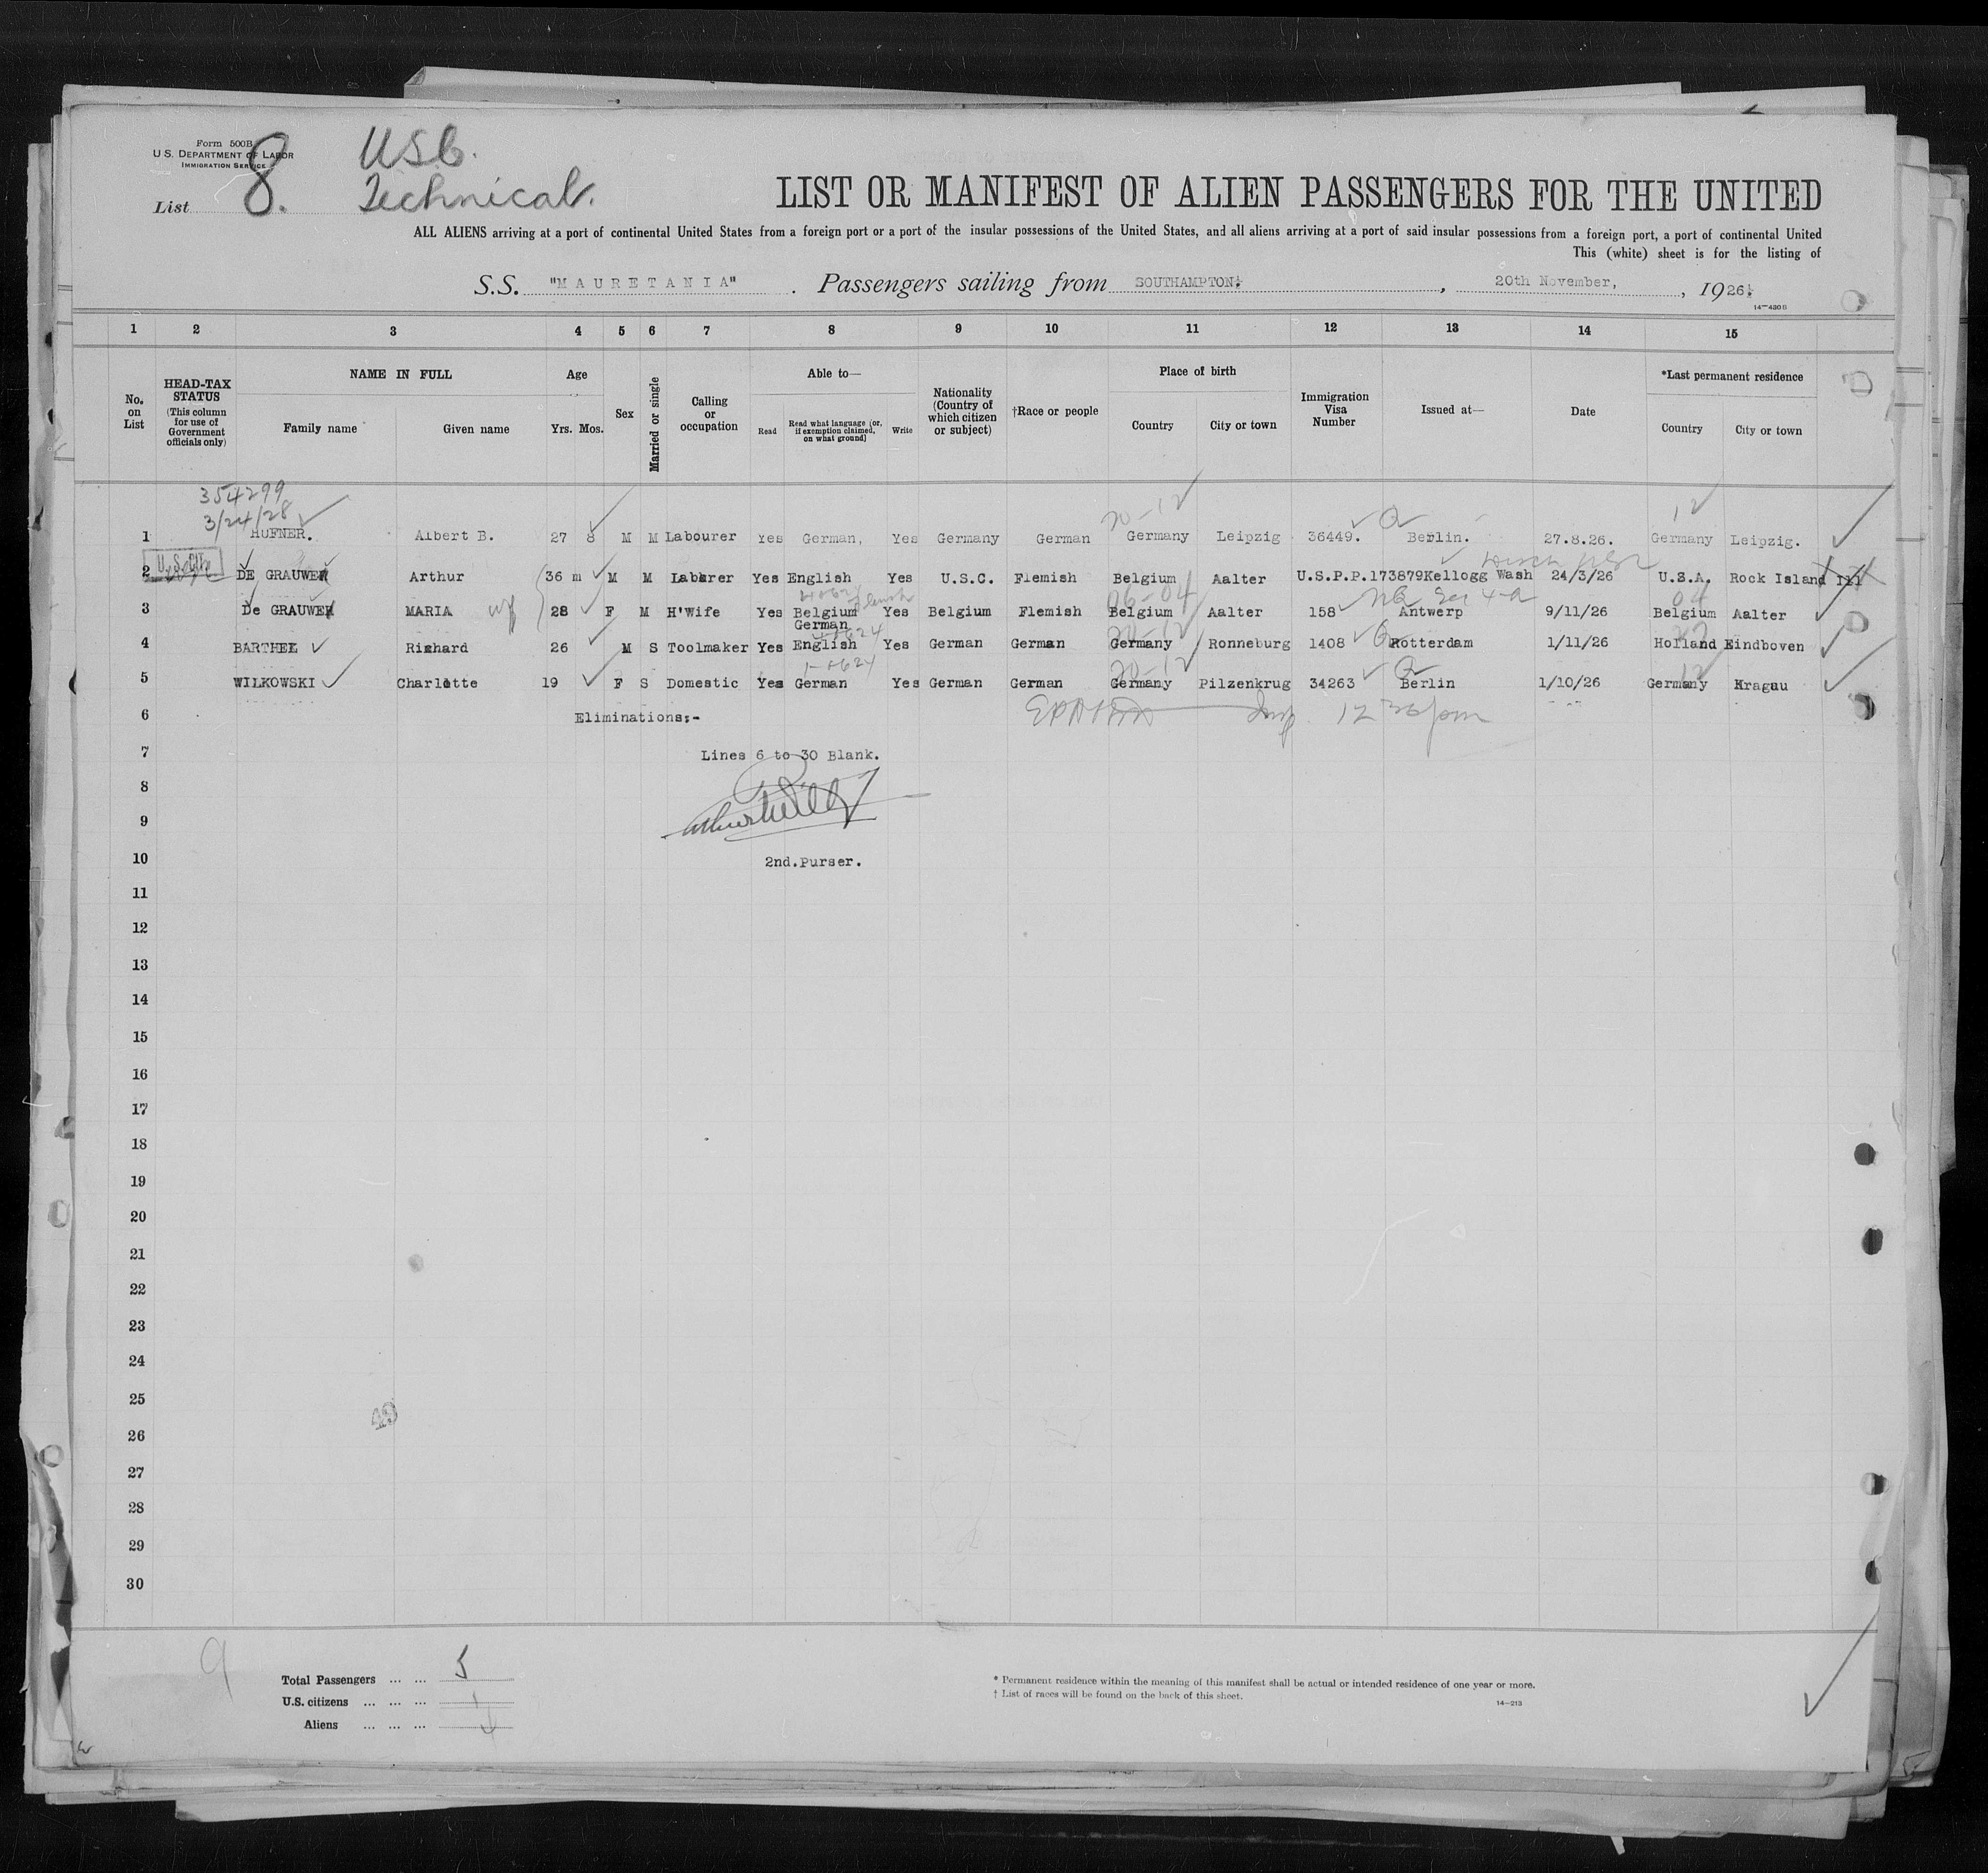 Form 500B
U.S. DEPARTMENT OF LABOR
IMMIGRATION SERVICE
List 8.
USC.
Technical.
LIST OR MANIFEST OF ALIEN PASSENGERS FOR THE UNITED
ALL ALIENS arriving at a port of continental United States from a foreign port or a port of the insular possessions of the United States, and all aliens arriving at a port of said insular possessions from a foreign port, a port of continental United
This (white) sheet is for the listing of
S.S. "MAURETANIA" . Passengers sailing from SOUTHAMPTON. , 20th November, , 1926.
14—430 B
1 2 3 4 5 6 7 8 9 10 11 12 13 14 15
No. on List
HEAD-TAX STATUS (This column for use of Government officials only)
NAME IN FULL
Family name Given name
Age
Yrs. Mos.
Sex
Married or single
Calling or occupation
Able to—
Read Read what language (or, if exemption claimed, on what ground) Write
Nationality (Country of which citizen or subject)
†Race or people
Place of birth
Country City or town
Immigration Visa Number
Issued at—
Date
*Last permanent residence
Country City or town
354299
3/24/28 20-12 12
1 HUFNER. Albert B. 27 8 M M Labourer Yes German, Yes Germany German Germany Leipzig 36449. Berlin. 27.8.26. Germany Leipzig.
U.S. Cit.
2 DE GRAUWE Arthur 36 m M M Labarer Yes English Yes U.S.C. Flemish Belgium Aalter U.S.P.P.173879 Kellogg Wash 24/3/26 U.S.A. Rock Island Ill
Flemish 06-04 04
3 De GRAUWE MARIA wf 28 F M H'Wife Yes Belgium Yes Belgium Flemish Belgium Aalter 158 Antwerp 9/11/26 Belgium Aalter
German 20-12
4 BARTHEL Richard 26 M S Toolmaker Yes English Yes German German Germany Ronneburg 1408 Rotterdam 1/11/26 Holland Eindboven
20-12 12
5 WILKOWSKI Charlotte 19 F S Domestic Yes German Yes German German Germany Pilzenkrug 34263 Berlin 1/10/26 Germany Kragau
6 Eliminations;-
7 Lines 6 to 30 Blank.
8
9
10 2nd.Purser.
11
12
13
14
15
16
17
18
19
20
21
22
23
24
25
49
26
27
28
29
30
9
Total Passengers ... ... 5
U.S. citizens ... ... ... 1
Aliens ... ... ... 4
* Permanent residence within the meaning of this manifest shall be actual or intended residence of one year or more.
† List of races will be found on the back of this sheet.
14—213